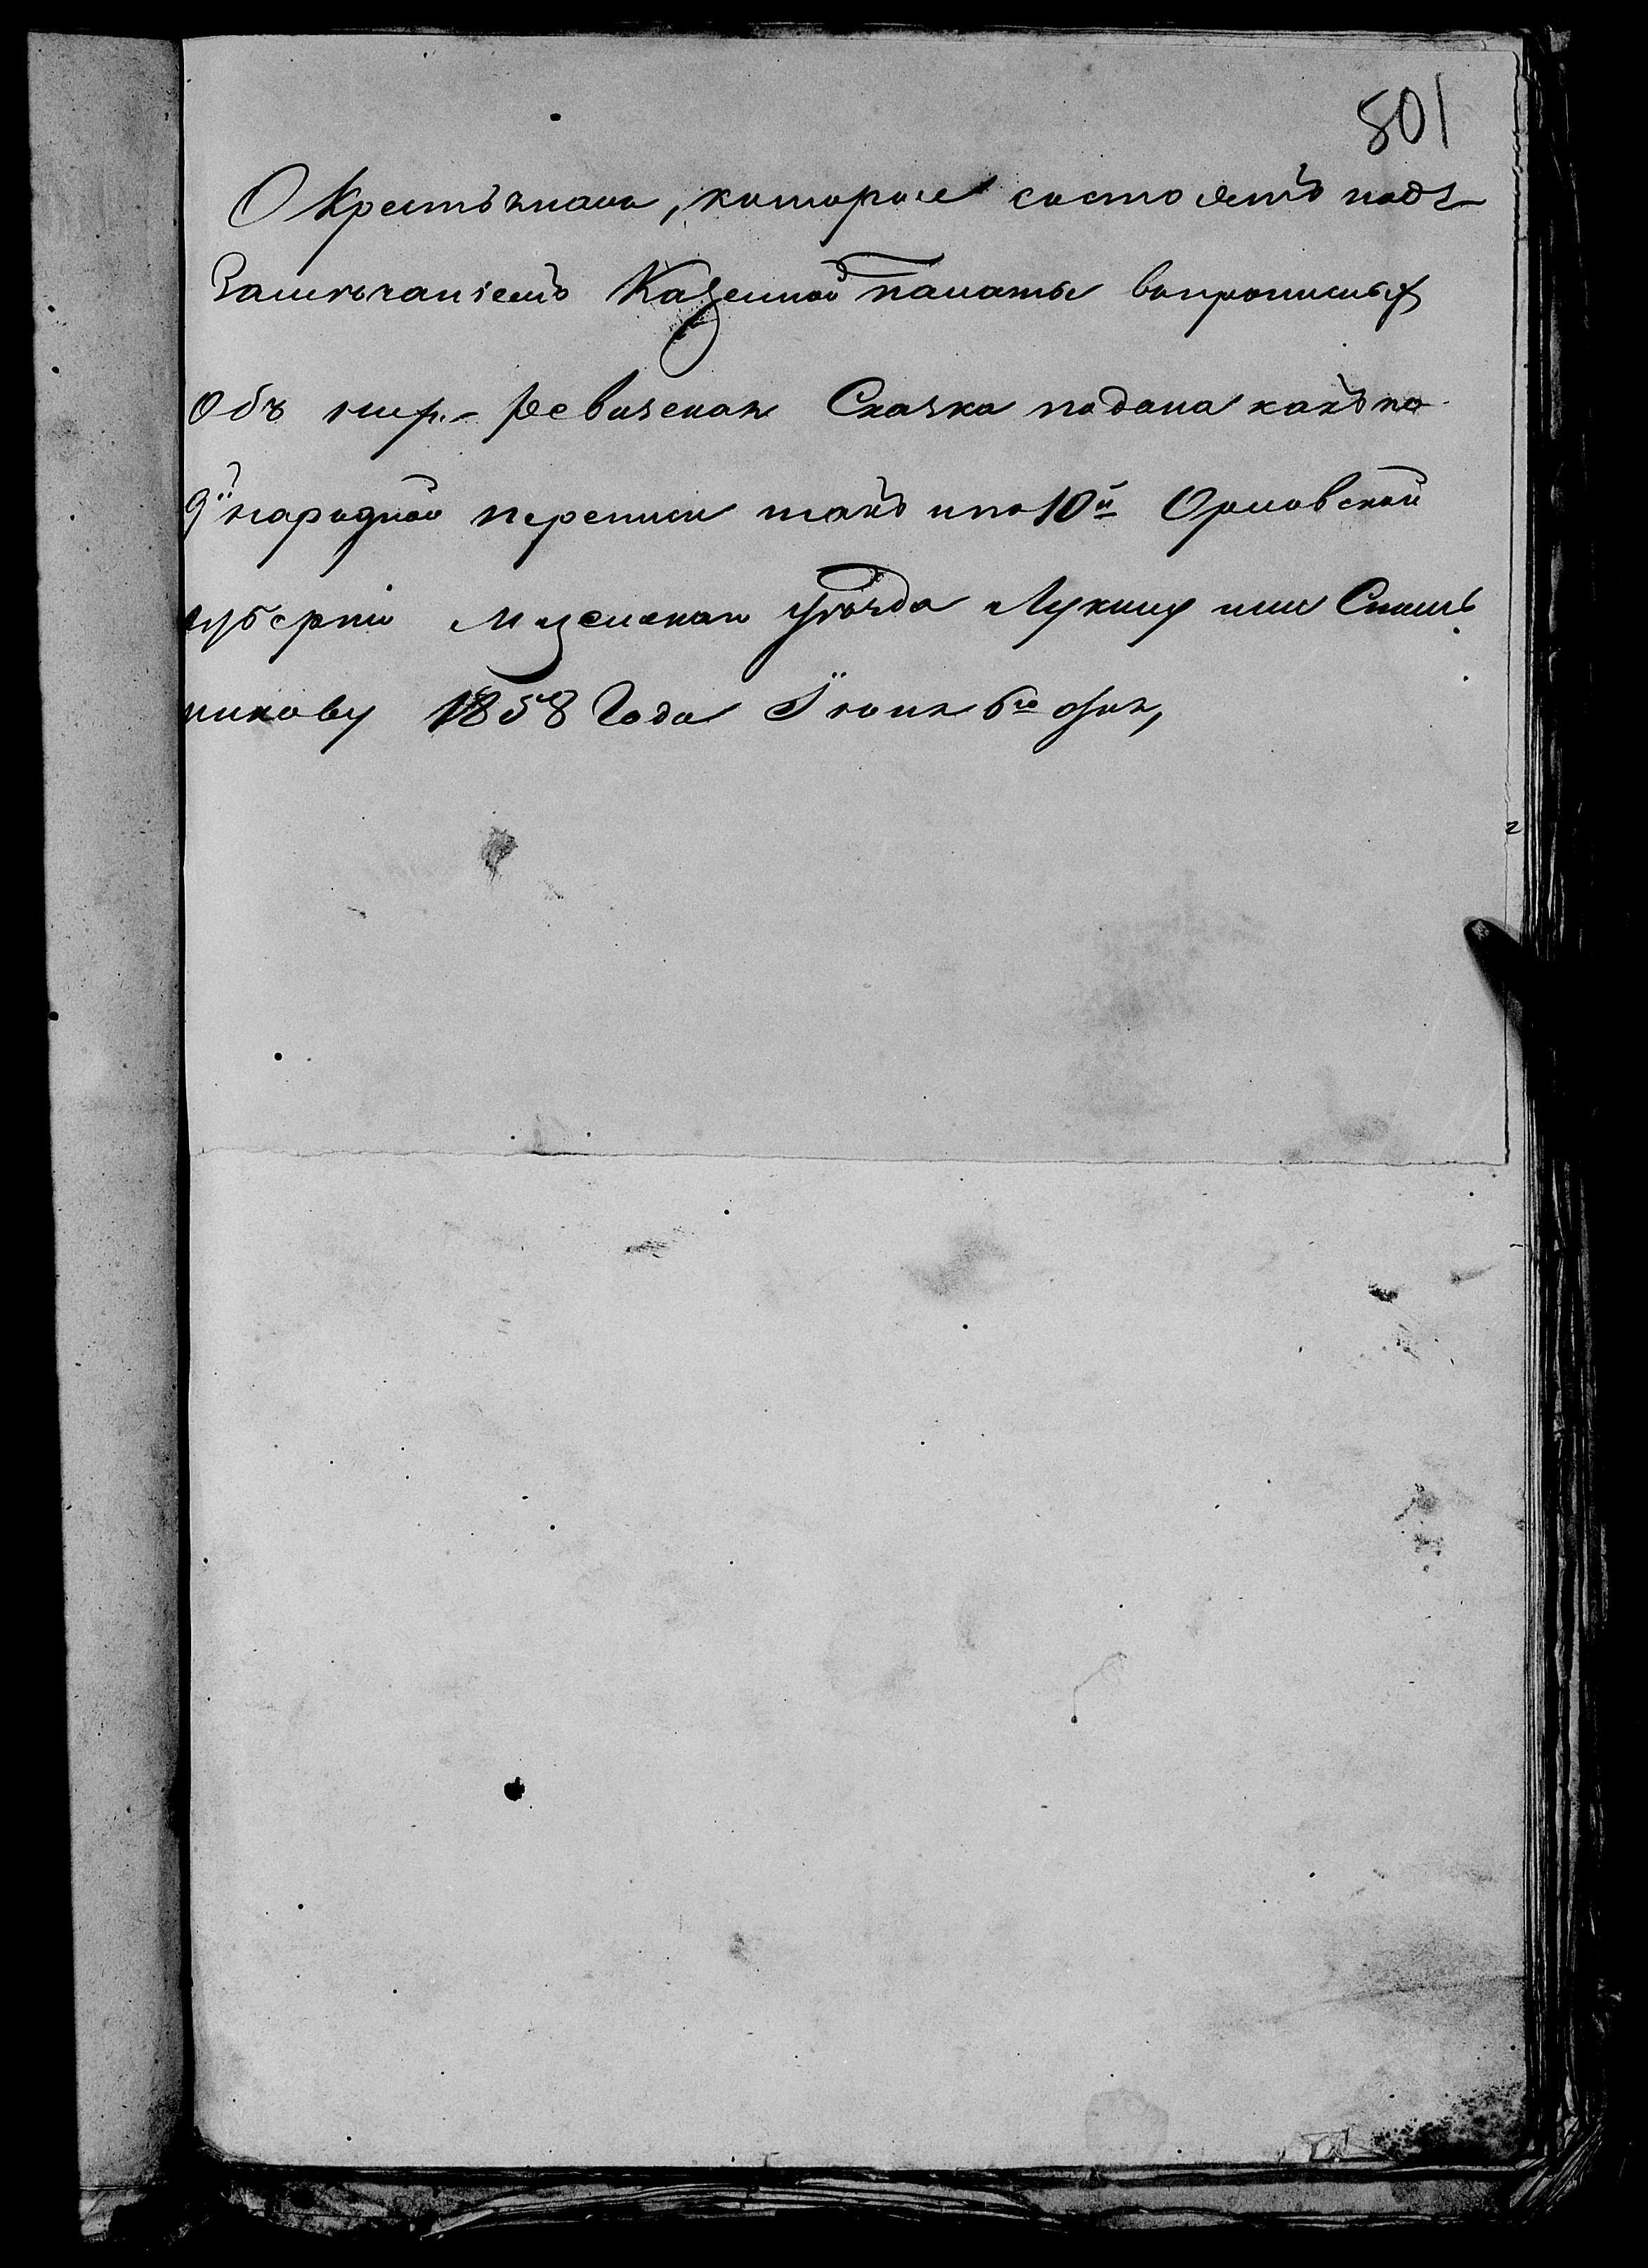 501
О Крестьянахъ, которые состоятъ подъ
Замѣчаніемъ Казенной палаты вопрописныхъ
Объ нихъ Ревизская Сказка подана какъ по
9й народной переписи такъ и по 10й Орловской
губерніи Мценскаго уѣзда Лукину или Спаш
никову 1858 Года Iюня 6го дня,